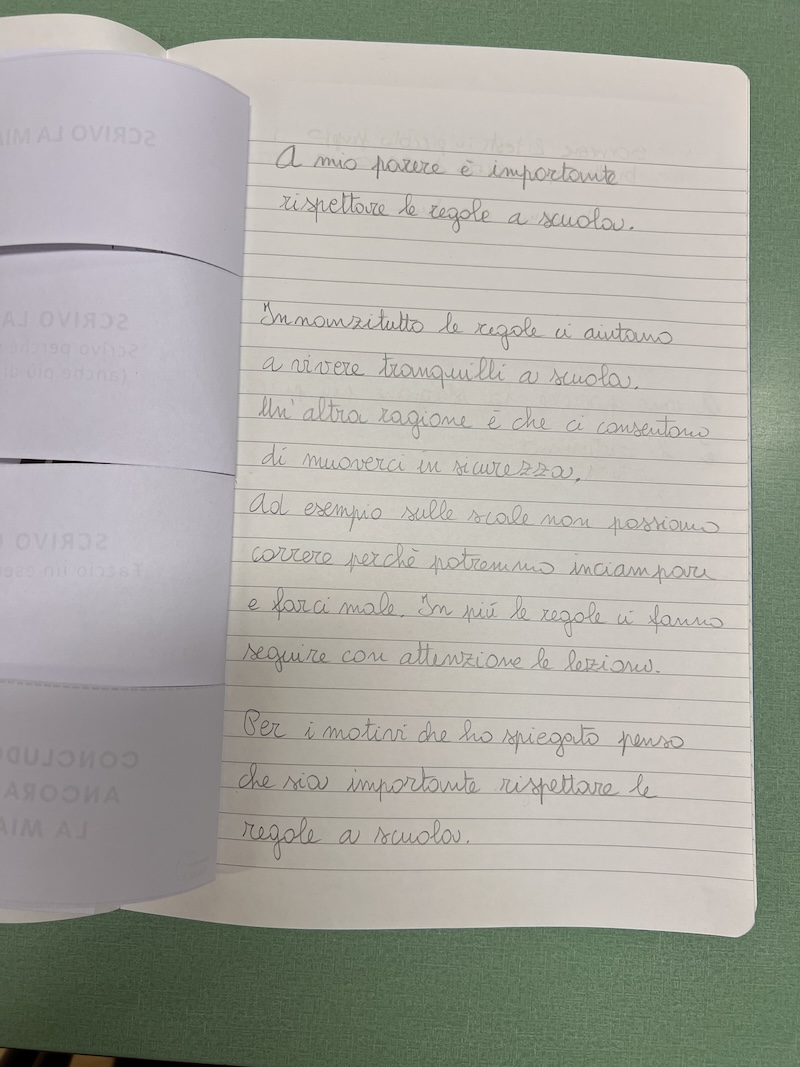 SCRIVO LA MIA
SCRIVO LA
Scrivo perché
(anche più
SCRIVO
Faccio un
CONCLUDO
ANCORA
LA MIA
A mio parere è importante
rispettare le regole a scuola.
Innanzitutto le regole ci aiutano
a vivere tranquilli a scuola.
Un'altra ragione è che ci consentono
di muoverci in sicurezza.
Ad esempio sulle scale non possiamo
correre perchè potremmo inciampare
e farci male. In più le regole ci fanno
seguire con attenzione le lezioni.
Per i motivi che ho spiegato penso
che sia importante rispettare le
regole a scuola.